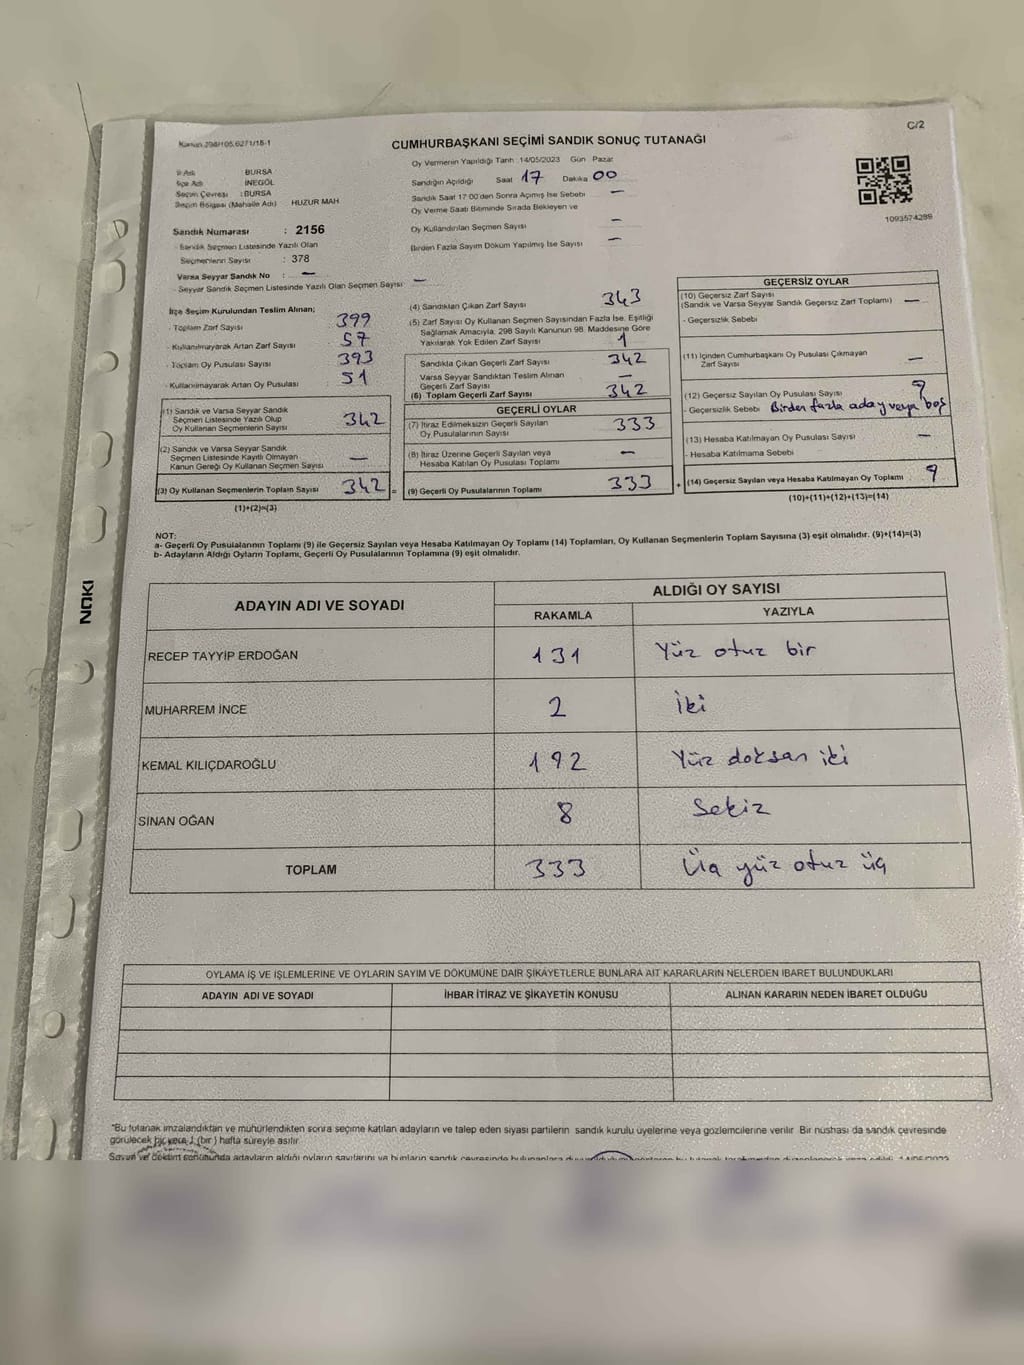 C/2
Kanun 298/105,6271/18-1
CUMHURBAŞKANI SEÇİMİ SANDIK SONUÇ TUTANAĞI
Oy Vermenin Yapıldığı Tarih : 14/05/2023 Gün Pazar
İl Adı BURSA
İlçe Adı İNEGÖL
Seçim Çevresi : BURSA
Seçim Bölgesi (Mahalle Adı) HUZUR MAH
Sandığın Açıldığı Saat 17 Dakika 00
Sandık Saat 17 00'den Sonra Açılmış İse Sebebi —
Oy Verme Saati Bitiminde Sırada Bekleyen ve
Oy Kullandırılan Seçmen Sayısı —
Birden Fazla Sayım Döküm Yapılmış İse Sayısı —
1093574289
Sandık Numarası : 2156
- Sandık Seçmen Listesinde Yazılı Olan
Seçmenlerin Sayısı : 378
Varsa Seyyar Sandık No : —
- Seyyar Sandık Seçmen Listesinde Yazılı Olan Seçmen Sayısı —
İlçe Seçim Kurulundan Teslim Alınan;
- Toplam Zarf Sayısı 399
- Kullanılmayarak Artan Zarf Sayısı 57
- Toplam Oy Pusulası Sayısı 393
- Kullanılmayarak Artan Oy Pusulası 51
(1) Sandık ve Varsa Seyyar Sandık
Seçmen Listesinde Yazılı Olup
Oy Kullanan Seçmenlerin Sayısı 342
(2) Sandık ve Varsa Seyyar Sandık
Seçmen Listesinde Kayıtlı Olmayan
Kanun Gereği Oy Kullanan Seçmen Sayısı —
(3) Oy Kullanan Seçmenlerin Toplam Sayısı 342 =
(1)+(2)=(3)
(4) Sandıktan Çıkan Zarf Sayısı 343
(5) Zarf Sayısı Oy Kullanan Seçmen Sayısından Fazla İse, Eşitliği
Sağlamak Amacıyla, 298 Sayılı Kanunun 98. Maddesine Göre
Yakılarak Yok Edilen Zarf Sayısı 1
Sandıkta Çıkan Geçerli Zarf Sayısı 342
Varsa Seyyar Sandıktan Teslim Alınan
Geçerli Zarf Sayısı —
(6) Toplam Geçerli Zarf Sayısı 342
GEÇERLİ OYLAR
(7) İtiraz Edilmeksizin Geçerli Sayılan
Oy Pusulalarının Sayısı 333
(8) İtiraz Üzerine Geçerli Sayılan veya
Hesaba Katılan Oy Pusulası Toplamı —
(9) Geçerli Oy Pusulalarının Toplamı 333 +
GEÇERSİZ OYLAR
(10) Geçersiz Zarf Sayısı
(Sandık ve Varsa Seyyar Sandık Geçersiz Zarf Toplamı) —
- Geçersizlik Sebebi
(11) İçinden Cumhurbaşkanı Oy Pusulası Çıkmayan
Zarf Sayısı —
(12) Geçersiz Sayılan Oy Pusulası Sayısı 9
- Geçersizlik Sebebi Birden fazla aday veya boş
(13) Hesaba Katılmayan Oy Pusulası Sayısı —
- Hesaba Katılmama Sebebi
(14) Geçersiz Sayılan veya Hesaba Katılmayan Oy Toplamı 9
(10)+(11)+(12)+(13)=(14)
NOT:
a- Geçerli Oy Pusulalarının Toplamı (9) ile Geçersiz Sayılan veya Hesaba Katılmayan Oy Toplamı (14) Toplamları, Oy Kullanan Seçmenlerin Toplam Sayısına (3) eşit olmalıdır. (9)+(14)=(3)
b- Adayların Aldığı Oyların Toplamı, Geçerli Oy Pusulalarının Toplamına (9) eşit olmalıdır.
NOKI
ADAYIN ADI VE SOYADI ALDIĞI OY SAYISI
RAKAMLA YAZIYLA
RECEP TAYYİP ERDOĞAN 131 Yüz otuz bir
MUHARREM İNCE 2 İki
KEMAL KILIÇDAROĞLU 192 Yüz doksan iki
SİNAN OĞAN 8 Sekiz
TOPLAM 333 Üç yüz otuz üç
OYLAMA İŞ VE İŞLEMLERİNE VE OYLARIN SAYIM VE DÖKÜMÜNE DAİR ŞİKAYETLERLE BUNLARA AİT KARARLARIN NELERDEN İBARET BULUNDUKLARI
ADAYIN ADI VE SOYADI İHBAR İTİRAZ VE ŞİKAYETİN KONUSU ALINAN KARARIN NEDEN İBARET OLDUĞU
"Bu tutanak imzalandıktan ve mühürlendikten sonra seçime katılan adayların ve talep eden siyasi partilerin sandık kurulu üyelerine veya gözlemcilerine verilir Bir nüshası da sandık çevresinde
görülecek bir yere 1 (bir) hafta süreyle asılır
Sayım ve döküm sonucunda adayların aldığı oyların sayılarını ve bunların sandık çevresinde